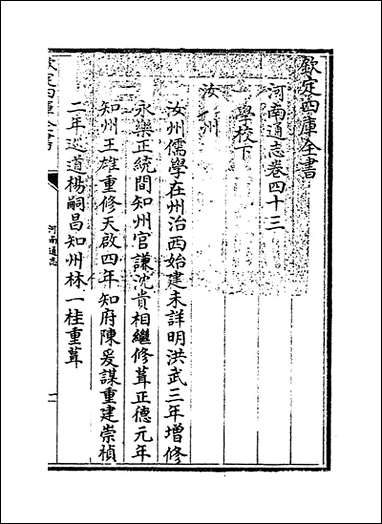 欽定四庫全書
河南通志卷四十三
學校下
汝州
汝州儒學在州治西始建未詳明洪武三年增修
永樂正統間知州官謙沈貴相繼修葺正德元年
知州王雄重修天啟四年知府陳爰謀重建崇楨
二年廵道楊嗣昌知州林一桂重葺
欽定四庫全書
河南通志
一